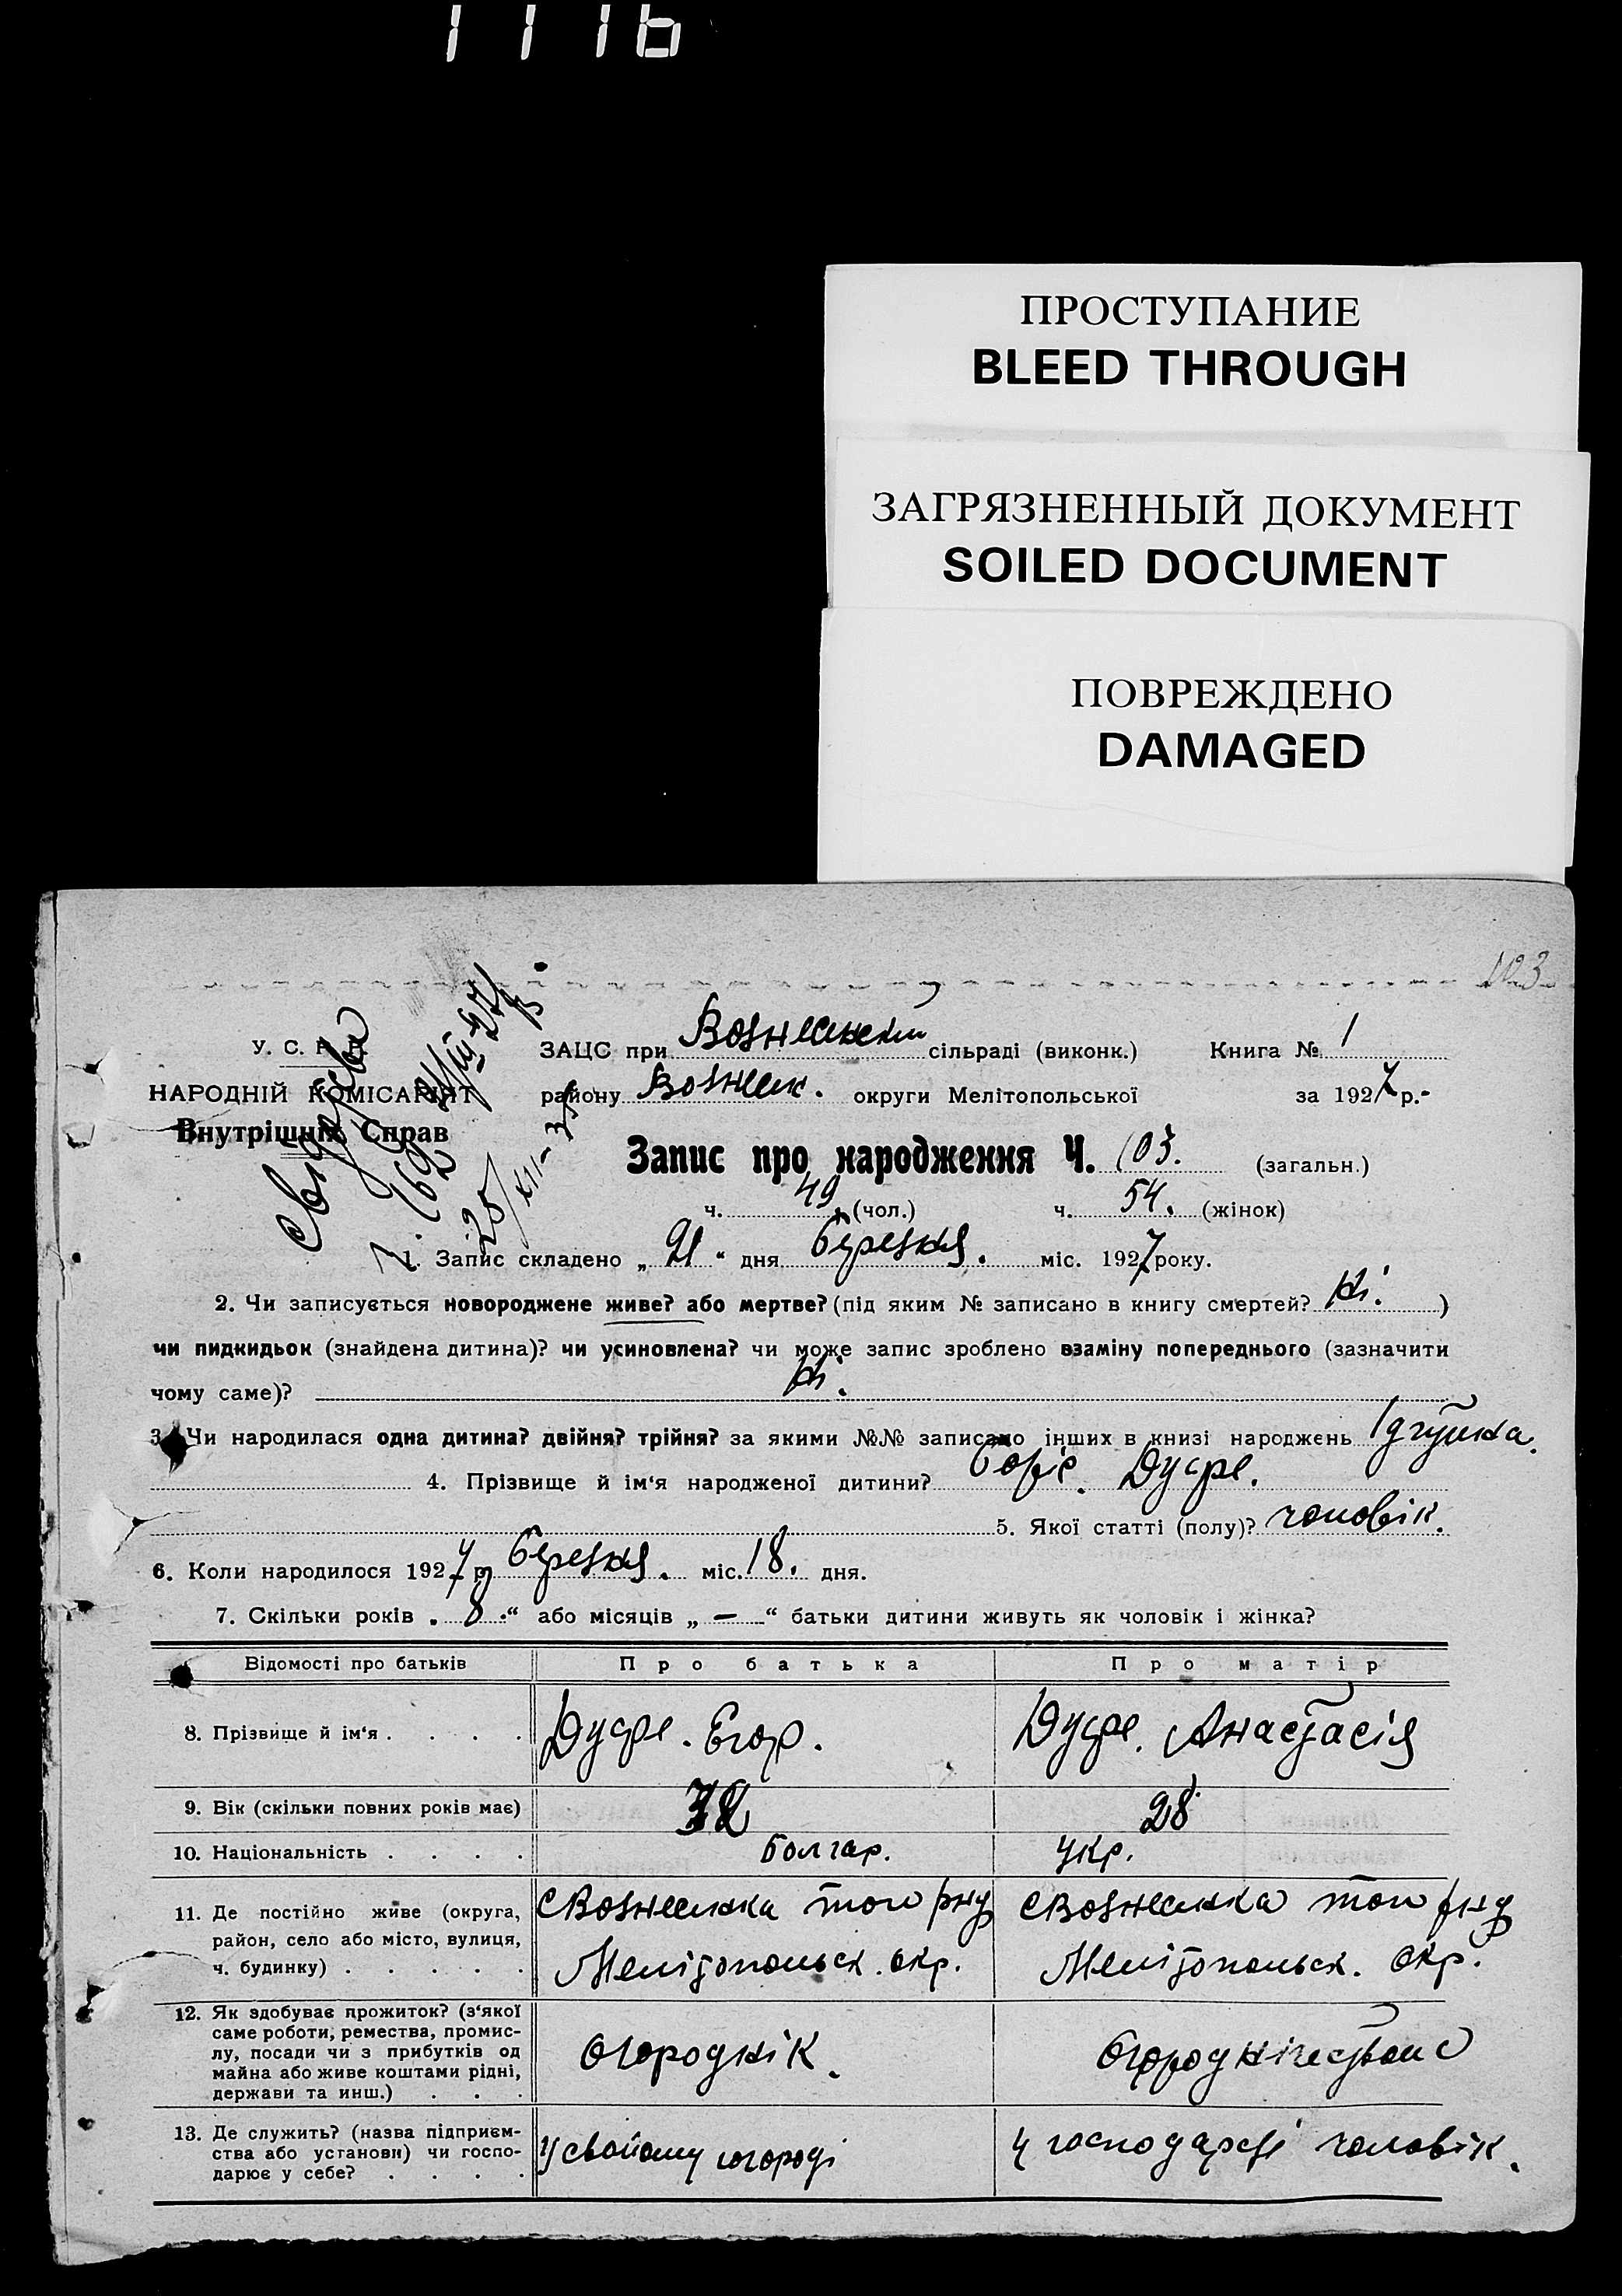 1116
ПРОСТУПАНИЕ
BLEED THROUGH
ЗАГРЯЗНЕННЫЙ ДОКУМЕНТ
SOILED DOCUMENT
ПОВРЕЖДЕНО
DAMAGED
103
У. С. Р. Р.
НАРОДНІЙ КОМІСАРІЯТ
Внутрішніх Справ
ЗАЦС при Вознесенськ сільраді (виконк.) Книга № 1
району Вознесн. округи Мелітопольської за 1927 р.
Запис про народження Ч. 103. (загальн.)
ч. 49 (чол.) ч. 54. (жінок)
1. Запис складено „ 21 “ дня березня. міс. 1927 року.
2. Чи записується новороджене живе? або мертве? (під яким № записано в книгу смертей? Ні. )
чи пидкидьок (знайдена дитина)? чи усиновлена? чи може запис зроблено взаміну попереднього (зазначити
чому саме)? Ні.
3. Чи народилася одна дитина? двійня? трійня? за якими №№ записано інших в книзі народжень 1
4. Прізвище й ім‘я народженої дитини?
5. Якої статті (полу)? чоловік.
6. Коли народилося 1927 р березня. міс. 18. дня.
7. Скільки років „ 8 “ або місяців „ — “ батьки дитини живуть як чоловік і жінка?
Відомості про батьків Про батька Про матір
8. Прізвище й ім‘я . . . . Егор. Анастасія
9. Вік (скільки повних років має) 28
10. Національність . . . . Болгар. Укр.
11. Де постійно живе (округа,
район, село або місто, вулиця,
ч. будинку) . . . . .
с Вознесенка того р-ну
Мелітопольск. окр.
с Вознесенка того р-ну
Мелітопольск. Окр.
12. Як здобуває прожиток? (з‘якої
саме роботи, ремества, промис-
лу, посади чи з прибутків од
майна або живе коштами рідні,
держави та инш.) . . .
Огороднік.
Огороднічество
13. Де служить? (назва підприєм-
ства або установи) чи госпо-
дарює у себе? . . . .
У свойому городі
У господарсві чоловік.